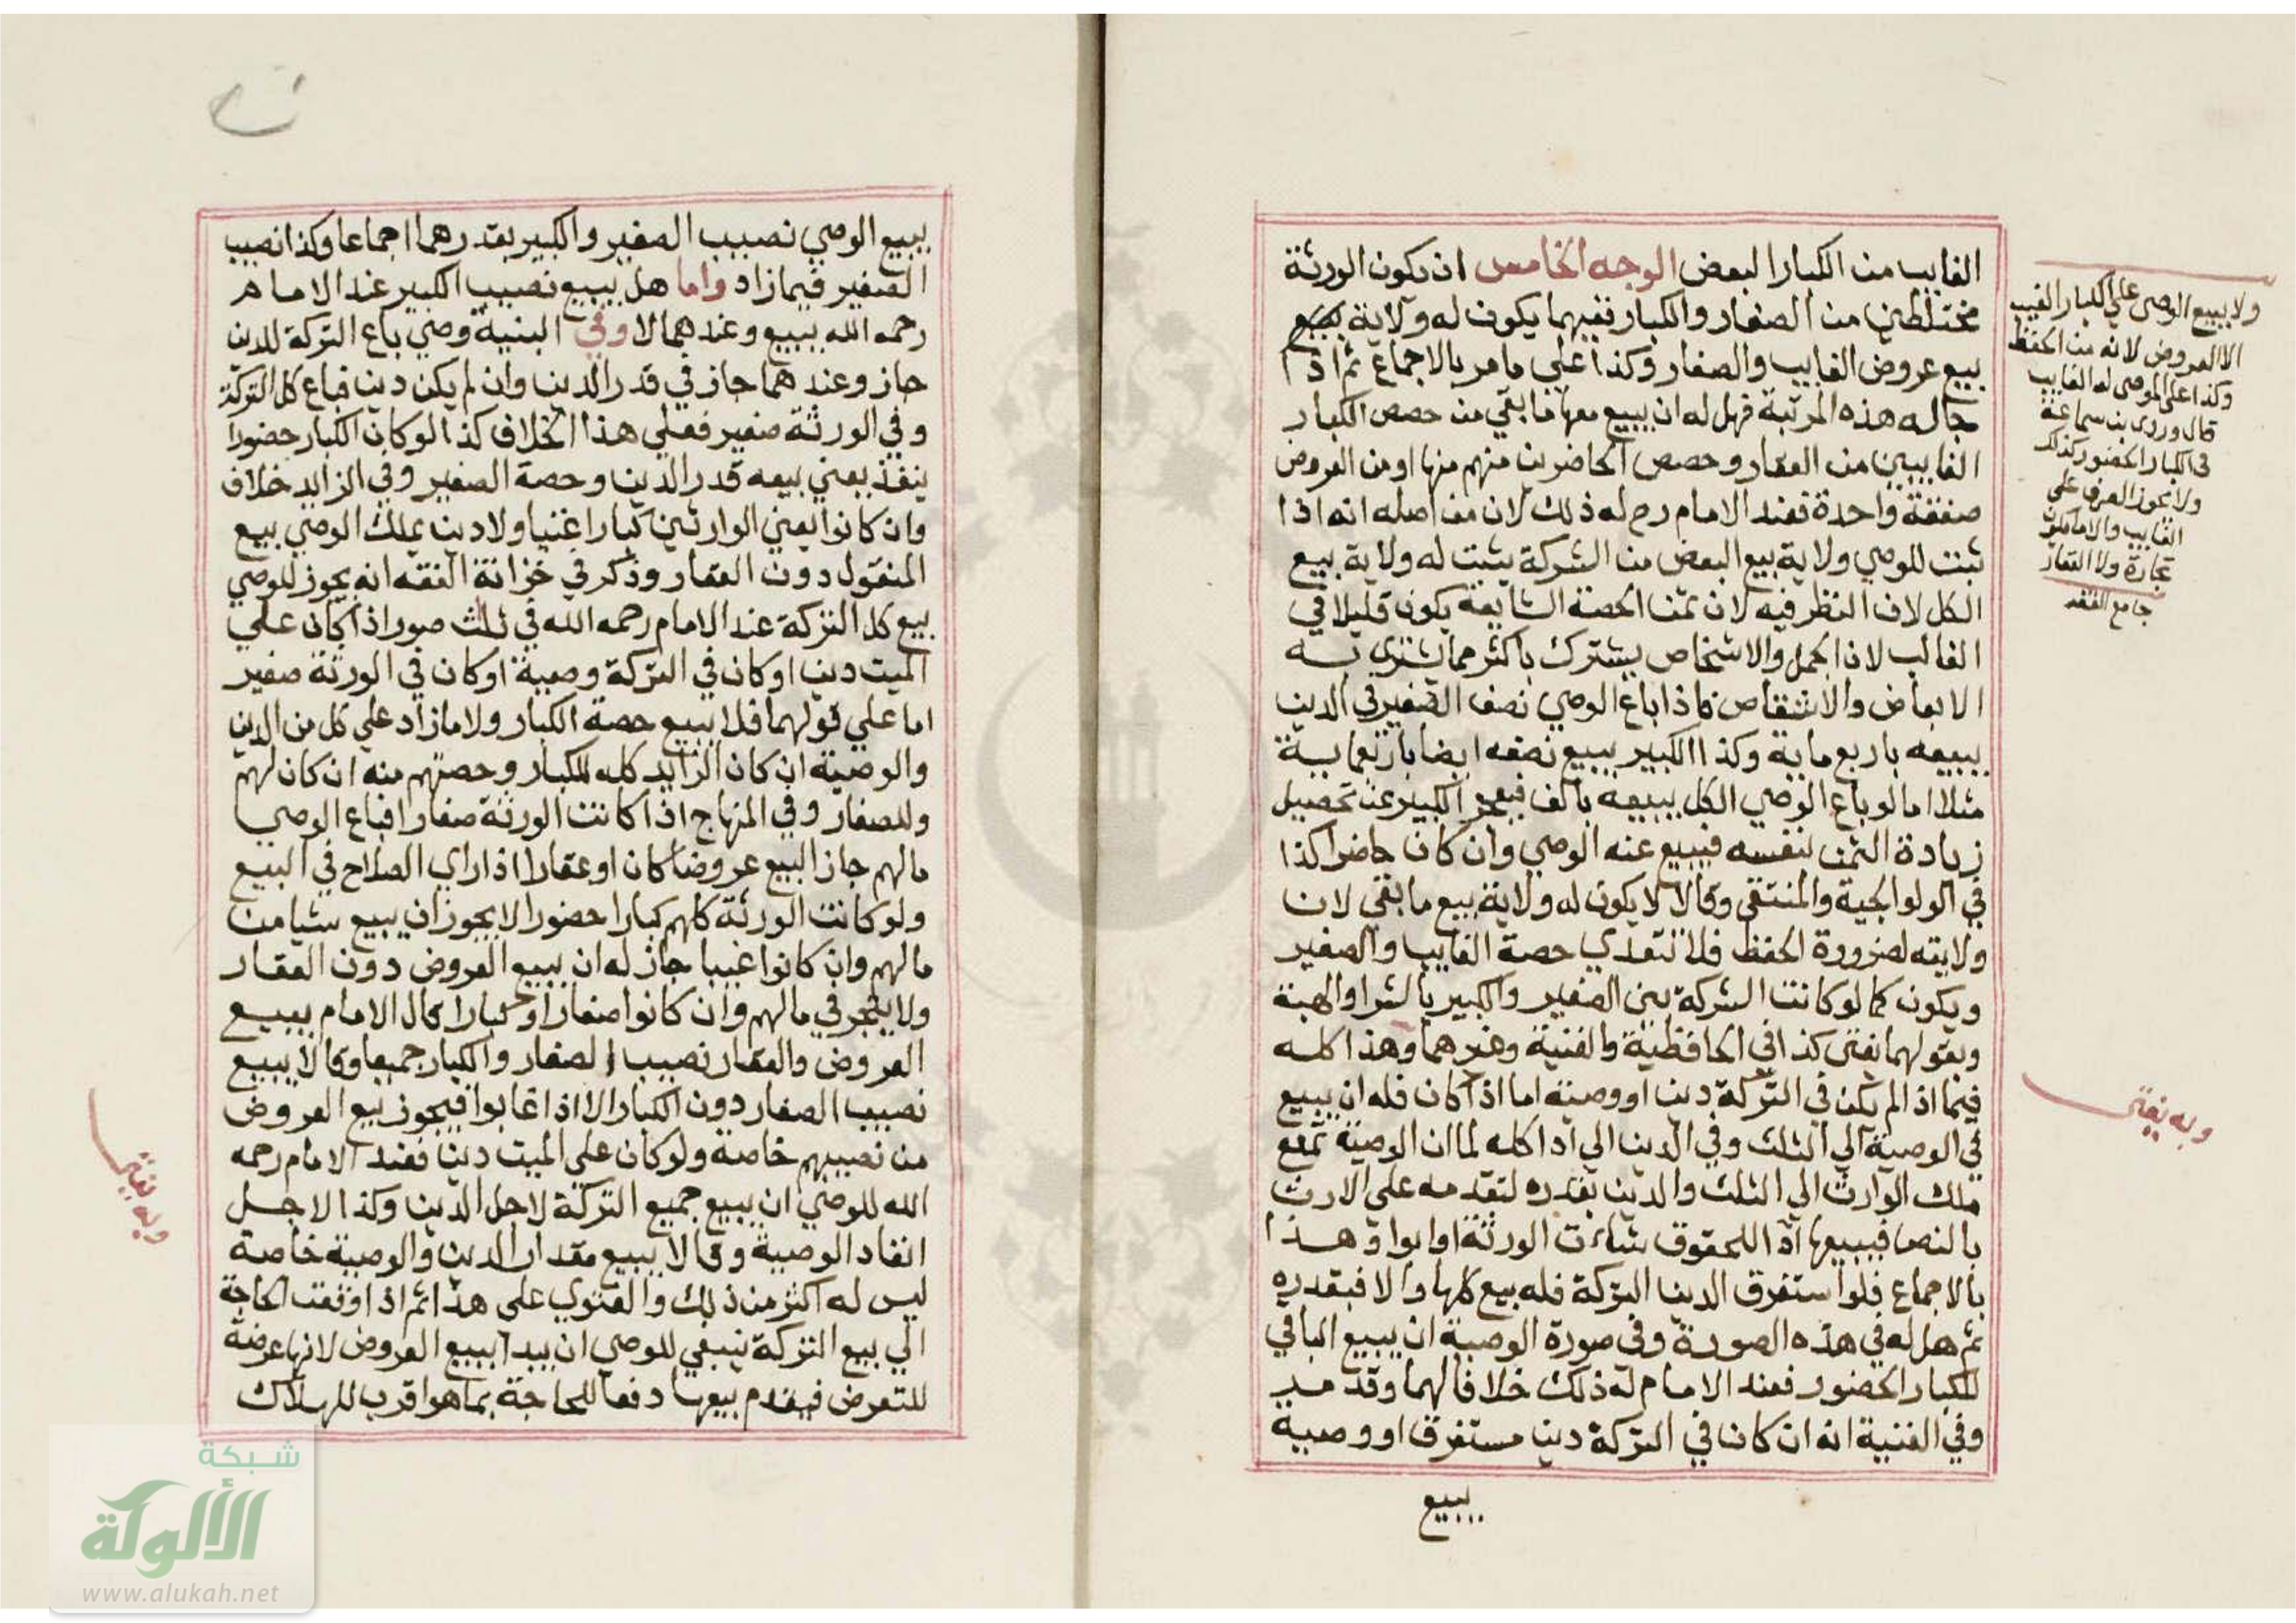 الغايب من الكبار البعض الوجه الخامس ان يكون الورثة
مختلطين من الصغار والكبار ففيهما يكون له ولاية
بيع عروض الغايب والصغار وكذا علي ما مر بالاجماع ثم اذا
جاله هذه المرتبة فهل له ان يبيع معها ما بقي من حصص الكبار
الغايبين من العقار وحصص الحاضرين منهم منها او من العروض
صفقة واحدة فعند الامام رح له ذلك لان من اصله انه اذا
ثبت للوصي ولاية بيع البعض من الشركة يثبت له ولاية بيع
الكل لان النظر فيه لان ثمن الحصة الشايعة يكون قليلا في
الغالب لان الجمل والاشخاص يشترك باكثر مما يشتري به
الابعاض والاشقاص فاذا باع الوصي نصف الصغير في الدين
يبيعه باربع ماية وكذا الكبير يبيع نصفه ايضا باربعماية
مثلا اما لو باع الوصي الكل يبيعه بالف فيعجز الكبير عن تحصيل
زيادة الثمن لنفسه فيبيع عنه الوصي وان كان حاضرا كذا
في الولوالجية والمنتقي وقالا لا يكون له ولاية بيع ما بقي لان
ولايته لضرورة الحفظ فلا تتعدي حصة الغايب والصغير
ويكون كما لو كانت الشركة بين الصغير والكبير بالشرا والهبة
وبقولهما يفتي كذا في الحافظية والغنية وغيرهما وهذا كله
فيما اذا لم يكن في التركة دين او وصية اما اذا كان فله ان يبيع
في الوصية الي الثلث وفي الدين الي اداكله لما ان الوصية تمنع
ملك الوارث الي الثلث والدين بقدره لتقدمه علي الارث
بالنص فيبيعها اذا للحقوق شاءت الورثة او ابوا وهذا
بالاجماع فلو استغرق الدين التركة فله بيع كلها والا فبقدره
ثم هل له في هذه الصورة وفي صورة الوصية ان يبيع الباقي
للكبار الحضور فعند الامام له ذلك خلافا لهما وقد مر
وفي الغنية انه ان كان في التركة دين مستغرق او وصية
يبيع
ولا يبيع الوصي علي الكبار الغيب
الا العروض لانه من الحفظ
وكذا علي الموصي له الغايب
قال وروي بن سماعة
في الكبار الحضور كذلك
ولا يجوز القرض علي
الغايب والاما يكون
تجارة ولا العقار
جامع الفقه
وبه يفتي
يبيع الوصي نصيب الصغير والكبير بقدرهما اجماعا وكذا نصيب
الصغير فيما زاد واما هل يبيع نصيب الكبير عند الامام
رحمه الله يبيع وعندهما لا وفي البنية وصي باع التركة للدين
جاز وعندهما جاز في قدر الدين وان لم يكن دين فباع كل التركة
وفي الورثة صغير فعلي هذا الخلاف كذا لو كان الكبار حضورا
ينفذ يعني بيعه قدر الدين وحصة الصغير وفي الزايد خلاف
وان كانوا يعني الوارثين كبارا غنيا ولا دين يملك الوصي بيع
المنقول دون العقار وذكر في خزانة الفقه انه يجوز للوصي
بيع كل التركة عند الامام رحمه الله في ثلث صور اذا كان علي
الميت دين او كان في التركة وصية او كان في الورثة صغير
اما علي قولهما فلا يبيع حصة الكبار ولا ما زاد علي كل من الدين
والوصية ان كان الزايد كله للكبار وحصتهم منه ان كان لهم
وللصغار وفي المنهاج اذا كانت الورثة صغارا فباع الوصي
مالهم جاز البيع عروضا كان او عقارا اذا راي الصلاح في البيع
ولو كانت الورثة كلهم كبارا حضورا لا يجوز ان يبيع شيا من
مالهم وان كانوا غيبا جاز له ان يبيع العروض دون العقار
ولا يتجر في مالهم وان كانوا صغارا او كبارا قال الامام يبيع
العروض والعقار نصيب الصغار والكبار جميعا وقالا يبيع
نصيب الصغار دون الكبار الا اذا غابوا فيجوز بيع العروض
من نصيبهم خاصة ولو كان علي الميت دين فعند الامام رحمه
الله للوصي ان يبيع جميع التركة لاجل الدين وكذا لاجل
انفاد الوصية وقالا يبيع مقدار الدين والوصية خاصة
ليس له اكثر من ذلك والفتوي علي هذا ثم اذا وقعت الحاجة
الي بيع التركة ينبغي للوصي ان يبدا ببيع العروض لانها عرضة
للتعرض فيقدم بيعها دفعا للحاجة بما هو اقرب للهلاك
وبه يفتي
شبكة
الألوكة
www.alukah.net